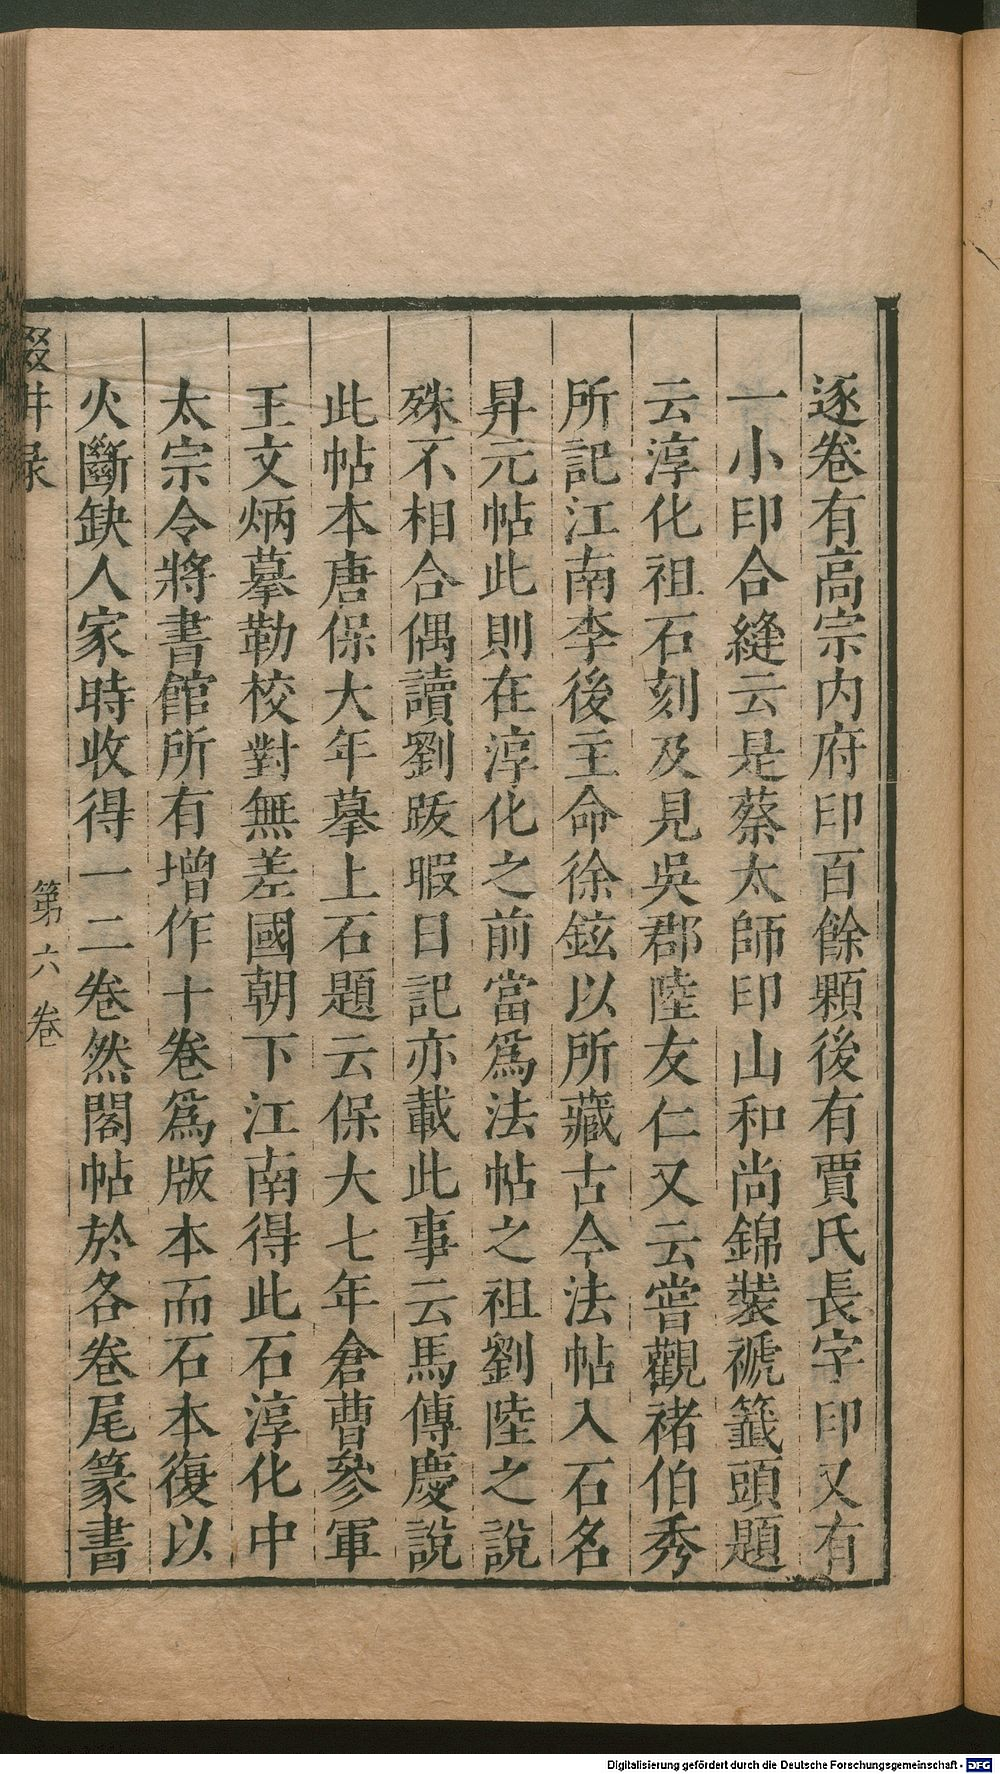 逐卷有高宗内府印百餘顆後有賈氏長字印又有
一小印合縫云是蔡太師印山和尚錦裝褫籤頭題
云淳化祖石刻及見吳郡陸友仁又云嘗觀褚伯秀
所記江南李後主命徐鉉以所藏古今法帖入石名
昇元帖此則在淳化之前當爲法帖之祖劉陸之說
殊不相合偶讀劉跋暇日記亦載此事云馬傳慶說
此帖本唐保大年摹上石題云保大七年倉曹參軍
王文炳摹勒校對無差國朝下江南得此石淳化中
太宗令將書館所有增作十卷爲版本而石本復以
火斷缺人家時收得一二卷然閣帖於各卷尾篆書
輟畊录
第六卷
Digitalisierung gefördert durch die Deutsche Forschungsgemeinschaft - DFG